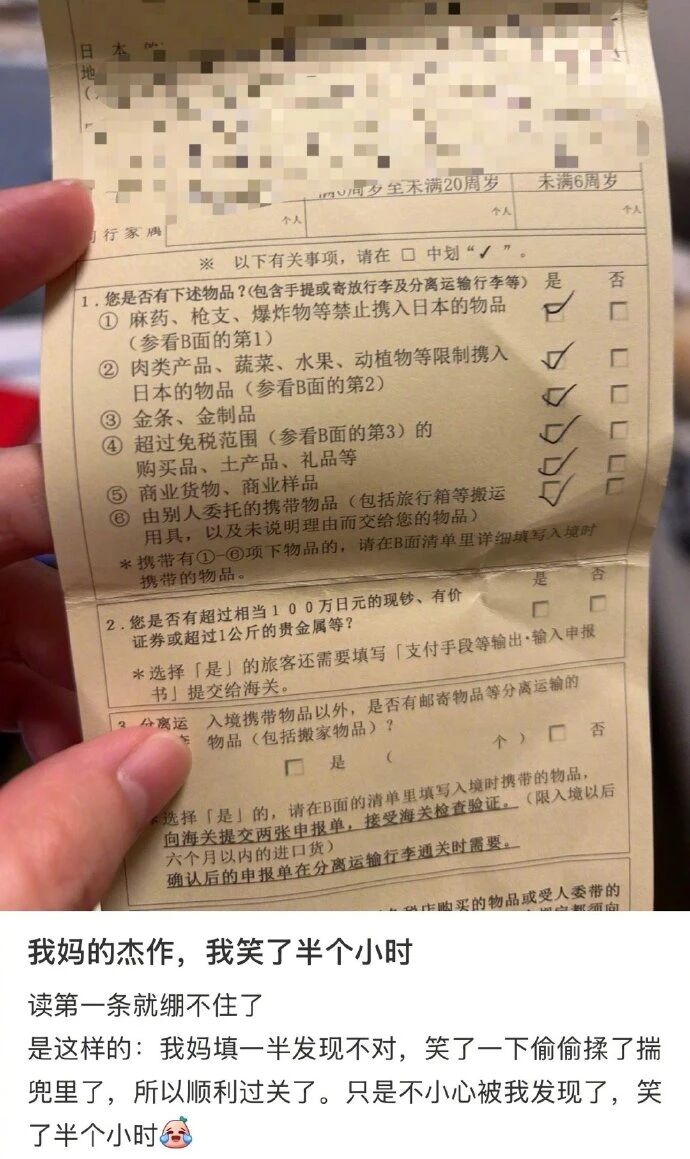 日本
地
满6周岁至未满20周岁
未满6周岁
同行家属
个人
个人
个人
※ 以下有关事项，请在 □ 中划“✓”。
1.您是否有下述物品？(包含手提或寄放行李及分离运输行李等) 是 否
① 麻药、枪支、爆炸物等禁止携入日本的物品
（参看B面的第1）
② 肉类产品、蔬菜、水果、动植物等限制携入
日本的物品（参看B面的第2）
③ 金条、金制品
④ 超过免税范围（参看B面的第3）的
购买品、土产品、礼品等
⑤ 商业货物、商业样品
⑥ 由别人委托的携带物品（包括旅行箱等搬运
用具，以及未说明理由而交给您的物品）
＊携带有①-⑥项下物品的，请在B面清单里详细填写入境时
携带的物品。
是 否
2.您是否有超过相当１００万日元的现钞、有价
证券或超过1公斤的贵金属等？
＊选择「是」的旅客还需要填写「支付手段等输出·输入申报
书」提交给海关。
3.分离运 入境携带物品以外，是否有邮寄物品等分离运输的
物品（包括搬家物品）？
□ 是 （ 个 ） □ 否
＊选择「是」的，请在B面的清单里填写入境时携带的物品，
向海关提交两张申报单，接受海关检查验证。（限入境以后
六个月以内的进口货）
确认后的申报单在分离运输行李通关时需要。
税店购买的物品或受人委带的
我妈的杰作，我笑了半个小时
读第一条就绷不住了
是这样的：我妈填一半发现不对，笑了一下偷偷揉了揣
兜里了，所以顺利过关了。只是不小心被我发现了，笑
了半个小时